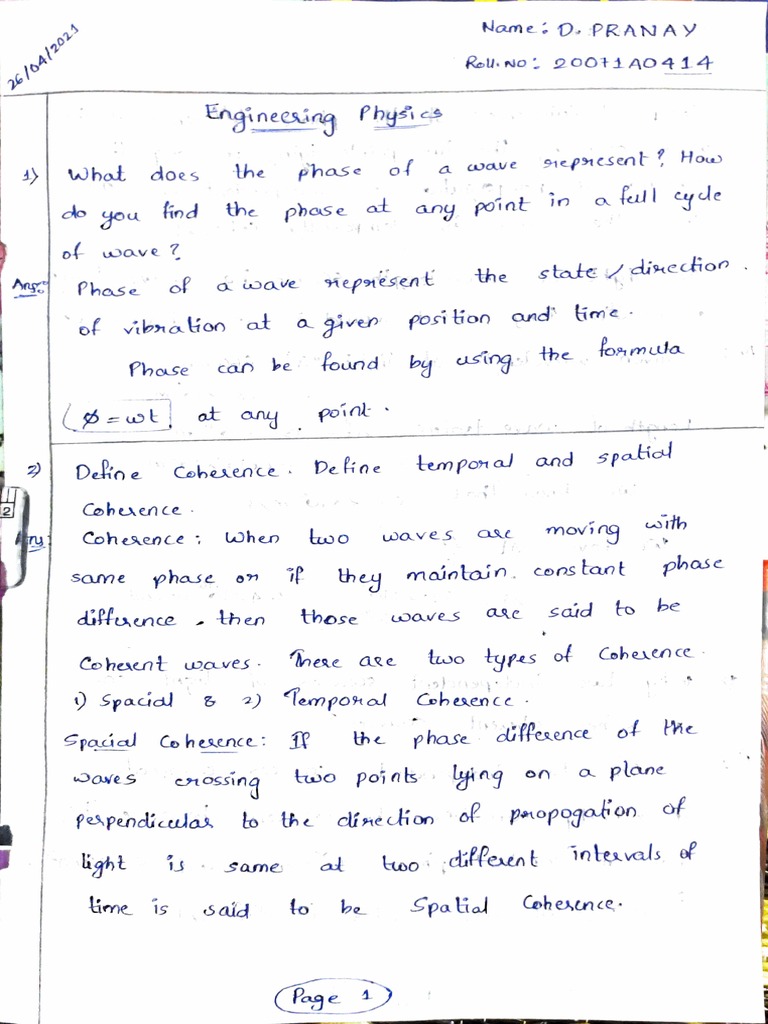 26/04/2021
Name: D. PRANAY
Roll.No: 20071A0414
Engineering Physics
1) What does the phase of a wave represent? How
do you find the phase at any point in a full cycle
of wave?
Ans: Phase of a wave represent the state / direction.
of vibration at a given position and time.
Phase can be found by using the formula
ϕ = ωt at any point.
2) Define Coherence. Define temporal and spatial
Coherence.
Coherence: When two waves are moving with
same phase or if they maintain constant phase
difference, then those waves are said to be
Coherent waves. There are two types of Coherence.
1) Spacial & 2) Temporal Coherence.
Spacial Coherence: If the phase difference of the
waves crossing two points lying on a plane
perpendicular to the direction of propogation of
light is same at two different intervals of
time is said to be Spatial Coherence.
Page 1
2